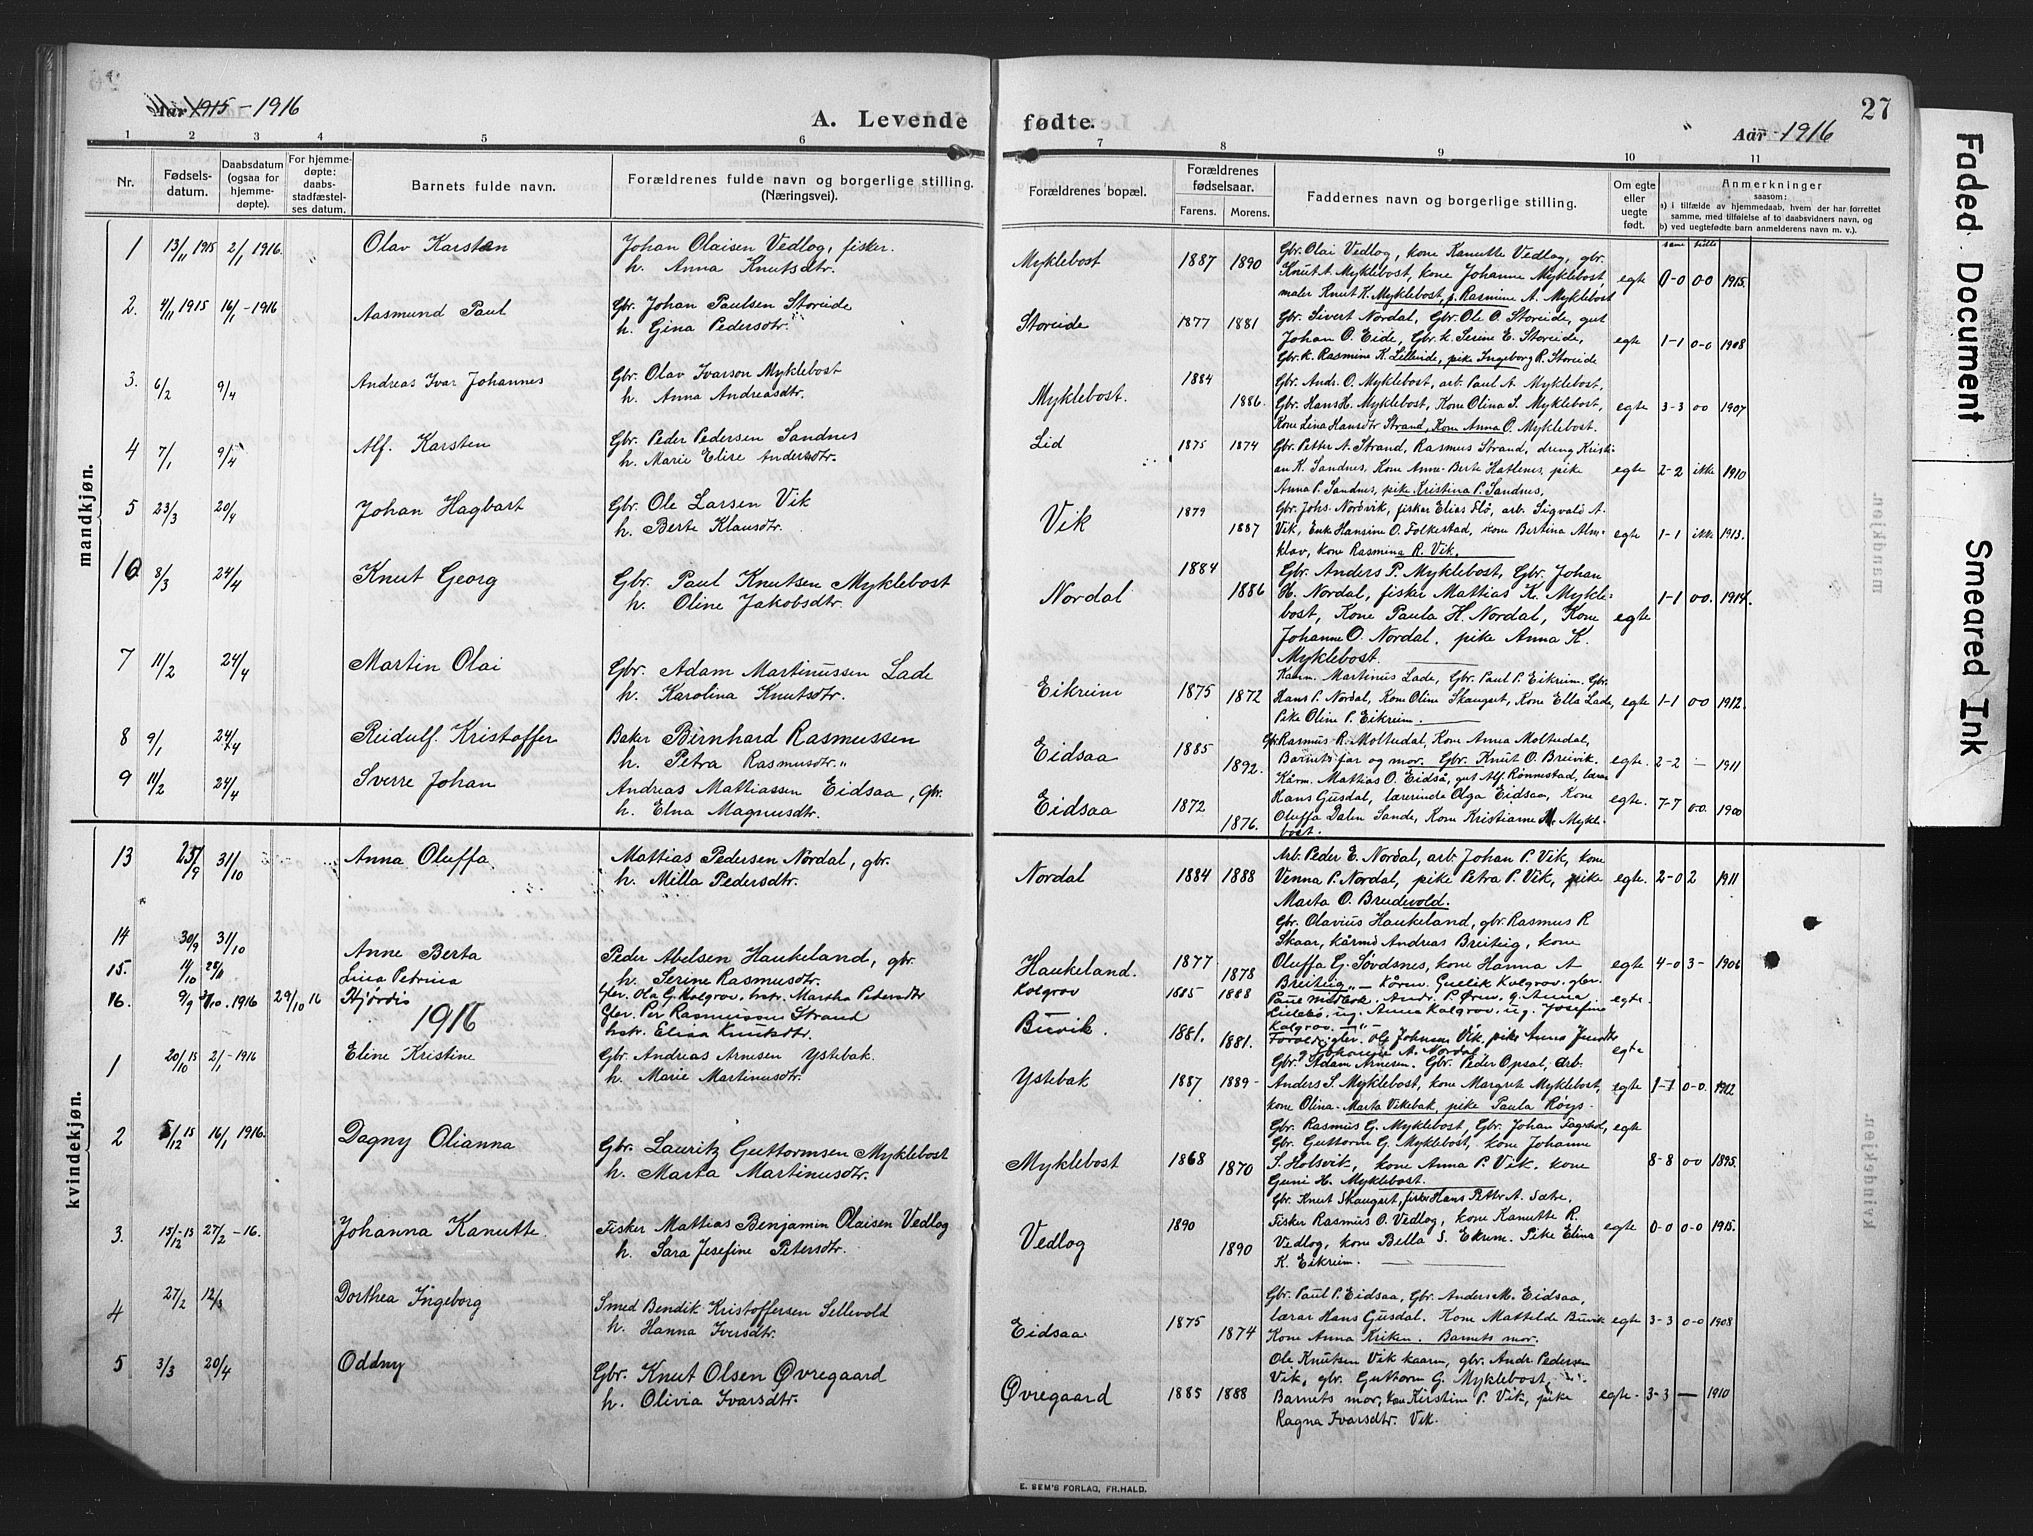 Aar 1915 - 1916
A. Levende fødte.
27
Aar 1916
1 2 3 4 5 6 7 8 9 10 11
Nr.
Fødsels-
datum.
Daabsdatum
(ogsaa for
hjemme-
døpte).
For hjemme-
døpte:
daabs-
stadfæstel-
ses datum.
Barnets fulde navn.
Forældrenes fulde navn og borgerlige stilling.
(Næringsvei).
Forældrenes bopæl.
Forældrenes
fødselsaar.
Farens. Morens.
Faddernes navn og borgerlige stilling.
Om egte
eller
uegte
født.
Anmerkninger
saasom:
a) i tilfælde av hjemmedaab, hvem der har forrettet
samme, med tilføielse af to daabsvidners navn, og
b) ved uegtefødte barn anmelderens navn m. v.).
mandkjøn.
1 13/11 1915 2/1 1916. Olav Karsten Johan Olaisen Vedlog, fisker.
h. Anna Knutsdtr.
Myklebost 1887 1890
Gbr. Olai Vedlog, kone Kanutte Vedlog, gbr.
Knut A. Myklebost, kone Johanne Myklebost,
maler Knut K. Myklebost, p. Rasmine A. Myklebost
egte 0-0 0-0 1915.
2. 4/11 1915 16/1 - 1916 Aasmund Paul Gbr. Johan Paulsen Storeide
h. Gina Pedersdtr.
Storeide 1877 1881
Gbr. Sivert Nordal, Gbr. Ole O. Storeide, gut
Johan O. Eide, Gbr. k. Serine E. Storeide,
Gbr. k. Rasmine K. Lilleide, pike Ingeborg R. Storeide
egte 1-1 0-0 1908
3. 6/2 9/4 Andreas Ivar Johannes Gbr. Olav Ivarson Myklebost
h. Anna Andreasdtr.
Myklebost. 1884 1886.
Gbr. Andr. O. Myklebost, arb. Paul A. Myklebost,
Gbr. Hans H. Myklebost, Kone Olina S. Myklebost,
Kone Lina Hansdtr Strand, Kone Anna O. Myklebost.
egte 3-3 00 1907
4 7/1 9/4 Alf. Karsten Gbr. Peder Pedersen Sandnes
h. Marie Elise Andersdtr.
Lid 1875 1874
Gbr. Petter A. Strand, Rasmus Strand, dreng Kristi-
an K. Sandnes, Kone Anne-Berte Hatlenes, pike
Anna P. Sandnes, pike Kristina P. Sandnes,
egte 2-2 ikke 1910
5 23/3 20/4 Johan Hagbart Gbr. Ole Larsen Vik
h. Berte Klausdtr.
Vik 1879 1887
Gbr. Johs. Nordvik, fisker Elias Flø, arb. Sigvald A.
Vik, Enke Hansine O. Folkestad, kone Bertina Alm-
klov, kone Rasmina R. Vik.
egte 1-1 ikke 1913.
10 8/3 24/4 Knut Georg Gbr. Paul Knutsen Myklebost
h. Oline Jakobsdtr.
Nordal 1884 1886
Gbr. Anders P. Myklebost, Gbr. Johan
H. Nordal, fisker Mattias K. Mykle-
bost, Kone Paula H. Nordal, Kone
Johanne O. Nordal, pike Anna K.
Myklebost.
egte 1-1 00. 1914.
7 11/2 24/4 Martin Olai Gbr. Adam Martinussen Lade
h. Karolina Knutsdtr.
Eikreim 1875 1872
Kaarm. Martinus Lade, Gbr. Paul P. Eikreim. Gbr.
Hans P. Nordal, Kone Oline Skauget, Kone Ella Lade,
Pike Oline P. Eikreim.
egte 1-1 00 1912.
8 9/1 24/4 Reidulf. Kristoffer Baker Bernhard Rasmussen
h. Petra Rasmusdtr.
Eidsaa 1885 1892.
Gbr. Rasmus R. Moltudal, Kone Anna Moltudal,
Barnets far og mor. Gbr. Knut O. Breivik.
egte. 2-2 - 1911
9 11/2 24/4 Sverre Johan Andreas Mattiassen Eidsaa, Gbr.
h. Elna Magnusdtr.
Eidsaa 1872 1876.
Kårm. Mattias O. Eidså, gut Alf. Rønnestad, lærer
Hans Gusdal, lærerinde Olga Eidsaa, Kone
Oluffa Dalen Sande, Kone Kristiane A. Mykle-
bost.
egte. 7-7 0-0. 1900
kvindekjøn.
13 25/9 31/10 Anna Oluffa. Mattias Pedersen Nordal, gbr.
h. Milla Pedersdtr.
Nordal 1884 1888
Arb. Peder E. Nordal, arb. Johan P. Vik, kone
Venna P. Nordal, pike Petra P. Vik, pike
Marta O. Breidevold.
egte. 2-0 2 1911
14 30/9 31/10 Anne Berta Peder Abelsen Haukeland, gbr.
h. Serine Rasmusdtr.
Haukeland. 1877 1878
Gbr. Olavius Haukeland, gbr. Rasmus R
Skaar, kårmd Andreas Breiteig, kone
Oluffa G. Søvdsnes, kone Hanna A
Breiteig
egte 4-0 3- 1906
15. 14/10 28/11 Lina Petrina Gbr. Ola G. Kolgrov, hstr. Martha Pedersdtr
Kolgrov 1885 1888
Kårm. Gullik Kolgrov, gbr.
egte
16. 9/9 1916 29/10 16 Hjørdis Gbr. Per Rasmussen Strand
hstr. Elisa Knutsdtr.
Buvik. 1881. 1881.
egte
1916
1 20/10 15 2/1 - 1916 Eline Kristine Gbr. Andreas Arnesen Ystebak.
h. Marie Martinusdtr.
Ystebak 1887 1889-
Gbr. Adam Arnesen. Gbr. Peder Opsal, Arb.
Anders S. Myklebost, kone Margrete Myklebost,
kone Olina- Marta Vikebak, pike Paula Røys-
egte 1-1 0-0. 1912
2 5/12 15 16/1 1916. Dagny Olianna Gbr. Lauritz Guttormsen Myklebost
h. Marta Martinusdtr.
Myklebost 1868 1870
Gbr. Rasmus G. Myklebost, Gbr. Johan Fagstad,
Gbr. Guttorm G. Myklebost, kone Johanne
S. Holsvik, kone Anna P. Vik. kone
Guni H. Myklebost.
egte 8-8 00 1895.
3. 15/12 15 27/2 - 16. Johanna Kanutte. Fisker Mattias Benjamin Olaisen Vedlog
h. Sara Josefine Petersdtr.
Vedlog 1890 1890
Gbr. Knut Skauget, fisker Hans Petter A. Sætre,
Fisker Rasmus O. Vedlog, kone Kanutte R.
Vedlog, kone Bella S. Ekrem. Pike Elina
K. Eikreim.
egte 0-0 0-0 1915.
4 27/2 12/3 Dorthea Ingeborg Smed Bendik Kristoffersen Sellevold
h. Hanna Iversdtr.
Eidsaa 1875 1874
Gbr. Paul P. Eidsaa, Gbr. Anders M. Eidsaa,
lærar Hans Gusdal. Kone Mathilde Buvik
Kone Anna Kriken. Barnets mor.
egte 3-3 0-0 1908
5 3/3 20/4 Oddny Gbr. Knut Olsen Øvregaard
h. Olivia Ivarsdtr.
Øvregaard 1885 1888
Ole Knutsen Vik kaarm, gbr. Andr. Pedersen
Vik, gbr. Guttorm G. Myklebost,
Barnets mor, kone Kirstine P. Vik, pike
Ragna Ivarsdtr. Vik.
egte. 3-3 - 1910
E. SEM'S FORLAG, FR.HALD.
Faded Document
Smeared Ink